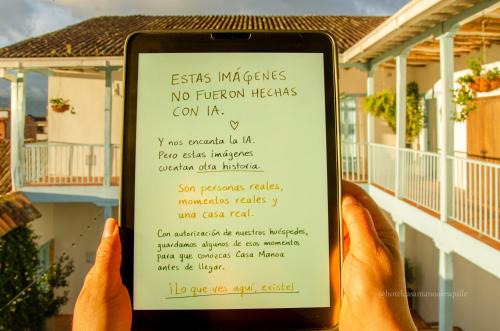 ESTAS IMÁGENES
NO FUERON HECHAS
CON IA.
Y nos encanta la IA.
Pero estas imágenes
cuentan otra historia.
Son personas reales,
momentos reales y
una casa real.
Con autorización de nuestros huéspedes,
guardamos algunos de esos momentos
para que conozcas Casa Manoa
antes de llegar.
¡Lo que ves aquí, existe!